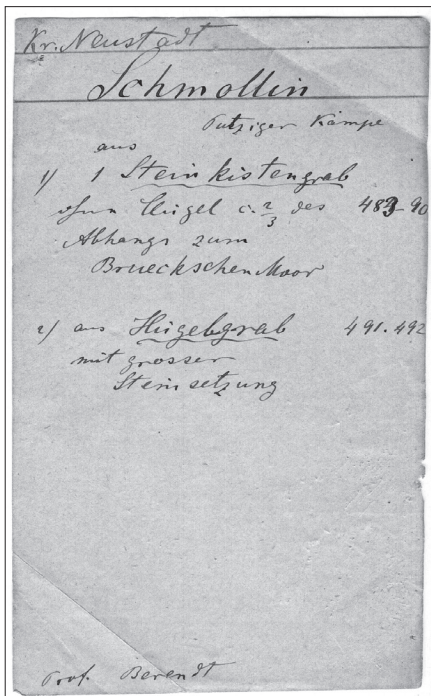 Kr. Neustadt
Schmollin
Putziger Kämpe
aus
1) 1 Steinkistengrab
ohne Hügel c. 2/3 des 483-90
Abhangs zum
Brueckschen Moor
2) aus Hügelgrab 491.492
mit grosser
Steinsetzung
Prof. Berendt